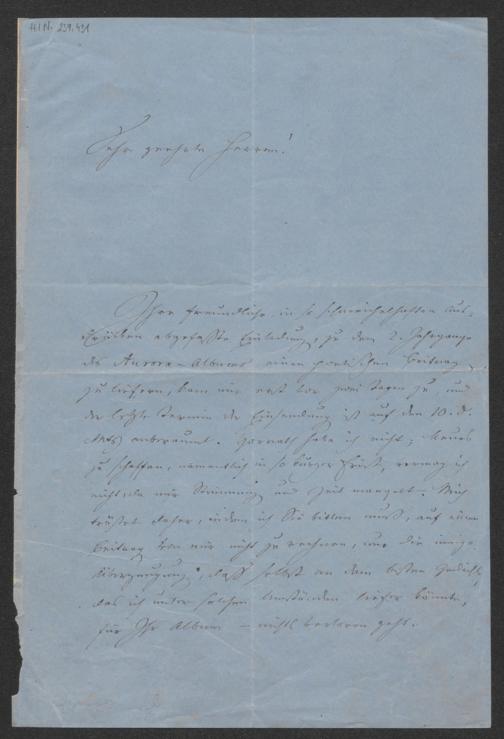 H.I.N. 231.431
Sehr geehrte Herren!
Ihre freundliche, in so schmeichelhaften Aus-
drücken abgefasste Einladung, zu dem 2. Jahrgange
des Aurora-Albums einen poetischen Beitrag
zu liefern, kam mir erst vor zwei Tagen zu, und
der letzte Termin der Einsendung ist auf den 10. d.
Mts anberaumt. Vorrath habe ich nicht; Neues
zu schaffen, namentlich in so kurzer Frist, vermag ich
nicht, da mir Stimmung und Zeit mangelt. Mich
tröstet daher, indem ich Sie bitten muß, auf einen
Beitrag von mir nicht zu rechnen, nur die innige
Überzeugung, daß selbst an dem besten Gedicht,
das ich unter solchen Umständen liefern könnte,
für Ihr Album – nichts verloren geht.